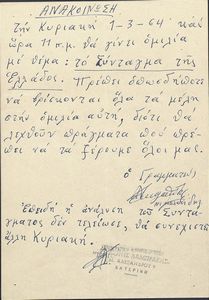 ΑΝΑΚΟΙΝΩΣΗ
τήν Κυριακή 1-3-64 καί
ὥρα 11 π.μ. θά γίνει ὁμιλία
μέ θέμα: τό Σύνταγμα τῆς
Ἑλλάδος. Πρέπει ὁπωσδήποτε
νά βρίσκονται ὅλα τά μέλη
στήν ὁμιλία αὐτή, διότι θά
λεχθοῦν πράγματα πού πρέ-
πει νά τά ξέρουμε ὅλοι μας.
ὁ Γραμματεύς
Ἐπειδή ἡ ἀνάλυση τοῦ Συντά-
γματος δέν τελείωσε, θά συνεχιστεῖ
ἄλλη Κυριακή.
ΚΑΤΕΡΙΝΗ